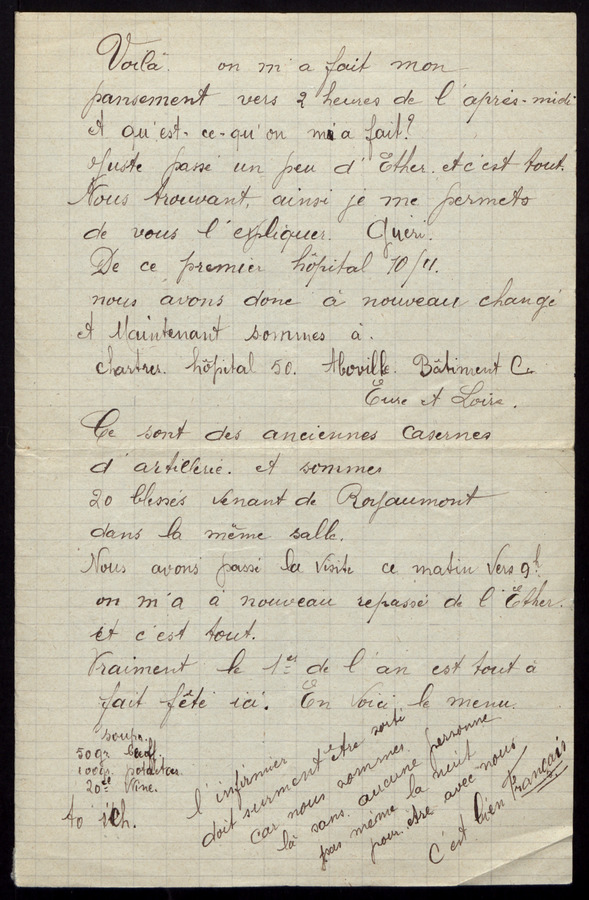 Voilà. on m'a fait mon
pansement vers 2 heures de l'après-midi
et qu'est-ce-qu'on m'a fait?
Juste passé un peu d'Ether. et c'est tout.
Nous trouvant, ainsi je me permets
de vous l'expliquer. Guéri.
De ce premier hôpital 10/11.
nous avons donc à nouveau changé
et Maintenant sommes à.
chartres. hôpital 50. Aboville. Bâtiment C.
Eure et Loire.
Ce sont des anciennes casernes
d'artillerie. et sommes
20 blessés venant de Royaumont
dans la même salle.
Nous avons passé la visite ce matin vers 9h
on m'a à nouveau repassé de l'Ether.
et c'est tout.
Vraiment le 1er de l'an est tout à
fait fêté ici. En Voici le menu.
soupe.
50gr. bœuf.
100gr. patates.
20cl Vine.
l'infirmier
doit surment être sorti
car nous sommes
là sans aucune personne
pas même la nuit
pour être avec nous
c'est bien Français